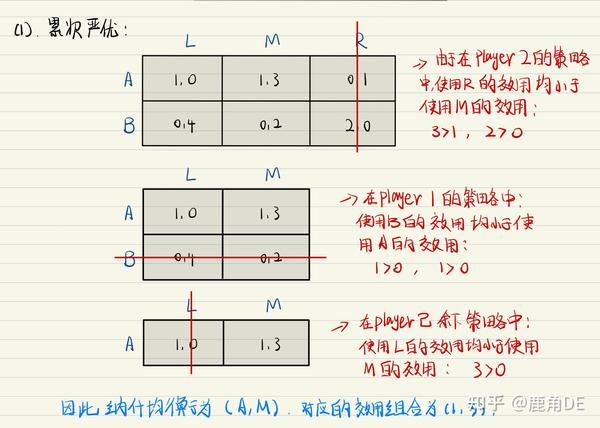 (1). 累次严优:
L M R
A 1,0 1,3 0,1
B 0,4 0,2 2,0
→ 由于在player 2的策略
中,使用R的效用均小于
使用M的效用:
3>1, 2>0
L M
A 1,0 1,3
B 0,4 0,2
→ 在player 1的策略中:
使用B的效用均小于使
用A的效用:
1>0, 1>0
L M
A 1,0 1,3
→ 在player 2 余下策略中:
使用L的效用均小于使用
M的效用: 3>0
因此纳什均衡为 (A,M). 对应的效用组合为(1,3).
知乎 @鹿角DE